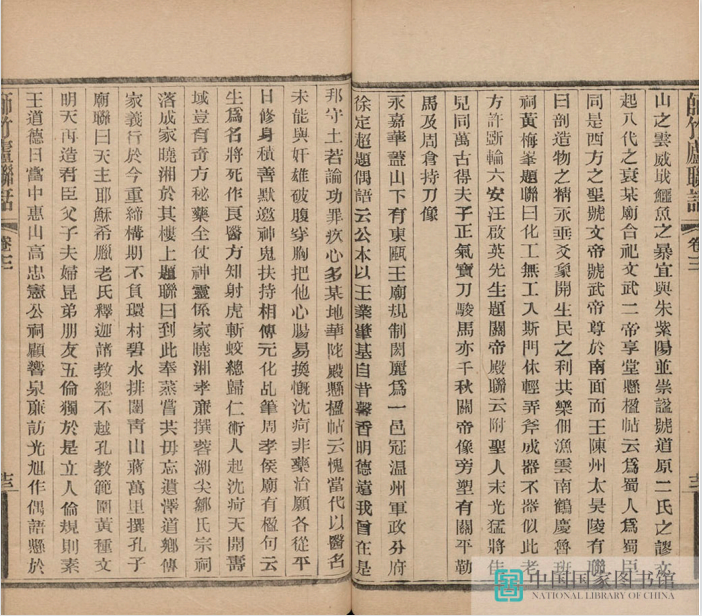 師竹廬聯話 卷三 十三
山之雲威戢鱷魚之暴宜與朱紫陽並崇諡號道原二氏之謬文
起八代之衰某廟合祀文武二帝享堂懸楹帖云爲蜀人爲蜀臣
同是西方之聖號文帝號武帝尊於南面而王陳州太昊陵有聯
曰剖造物之精永垂爻象開生民之利共樂佃漁雲南鶴慶魯班
祠黃梅峯題聯曰化工無工入斯門休輕弄斧成器不器似此老
方許斲輪六安汪啟英先生題關帝殿聯云附聖人末光猛將佳
兒同萬古得夫子正氣寶刀駿馬亦千秋關帝像旁塑有關平勒
馬及周倉持刀像
永嘉華蓋山下有東甌王廟規制閎麗爲一邑冠温州軍政分府
徐定超題偶語云公本以王業肇基自昔馨香明德遠我旨在是
邦守土若論功罪疚心多某地華陀殿懸楹帖云愧當代以醫名
未能與奸雄破腹穿胸把他心腸易換慨沈疴非藥治願各從平
日修身積善默邀神鬼扶持相傳元化乩筆周孝侯廟有楹句云
生爲名將死作良醫方知射虎斬蛟總歸仁術人起沈疴天開壽
域豈有奇方秘藥全仗神靈係家曉湘孝廉撰蓉湖尖鄒氏宗祠
落成家曉湘於其樓上題聯曰到此奉蒸嘗其毋忘遺澤道鄉傳
家義行於今重締構期不負環村碧水排闥青山蔣萬里撰孔子
廟聯曰天主耶穌希臘老氏釋迦諸教總不越孔教範圍黃種文
明天再造君臣父子夫婦昆弟朋友五倫獨於是立人倫規則素
王道德日當中惠山高忠憲公祠顧響泉廉訪光旭作偶語懸於
師竹廬聯話 卷三 十三
中国国家图书馆
NATIONAL LIBRARY OF CHINA